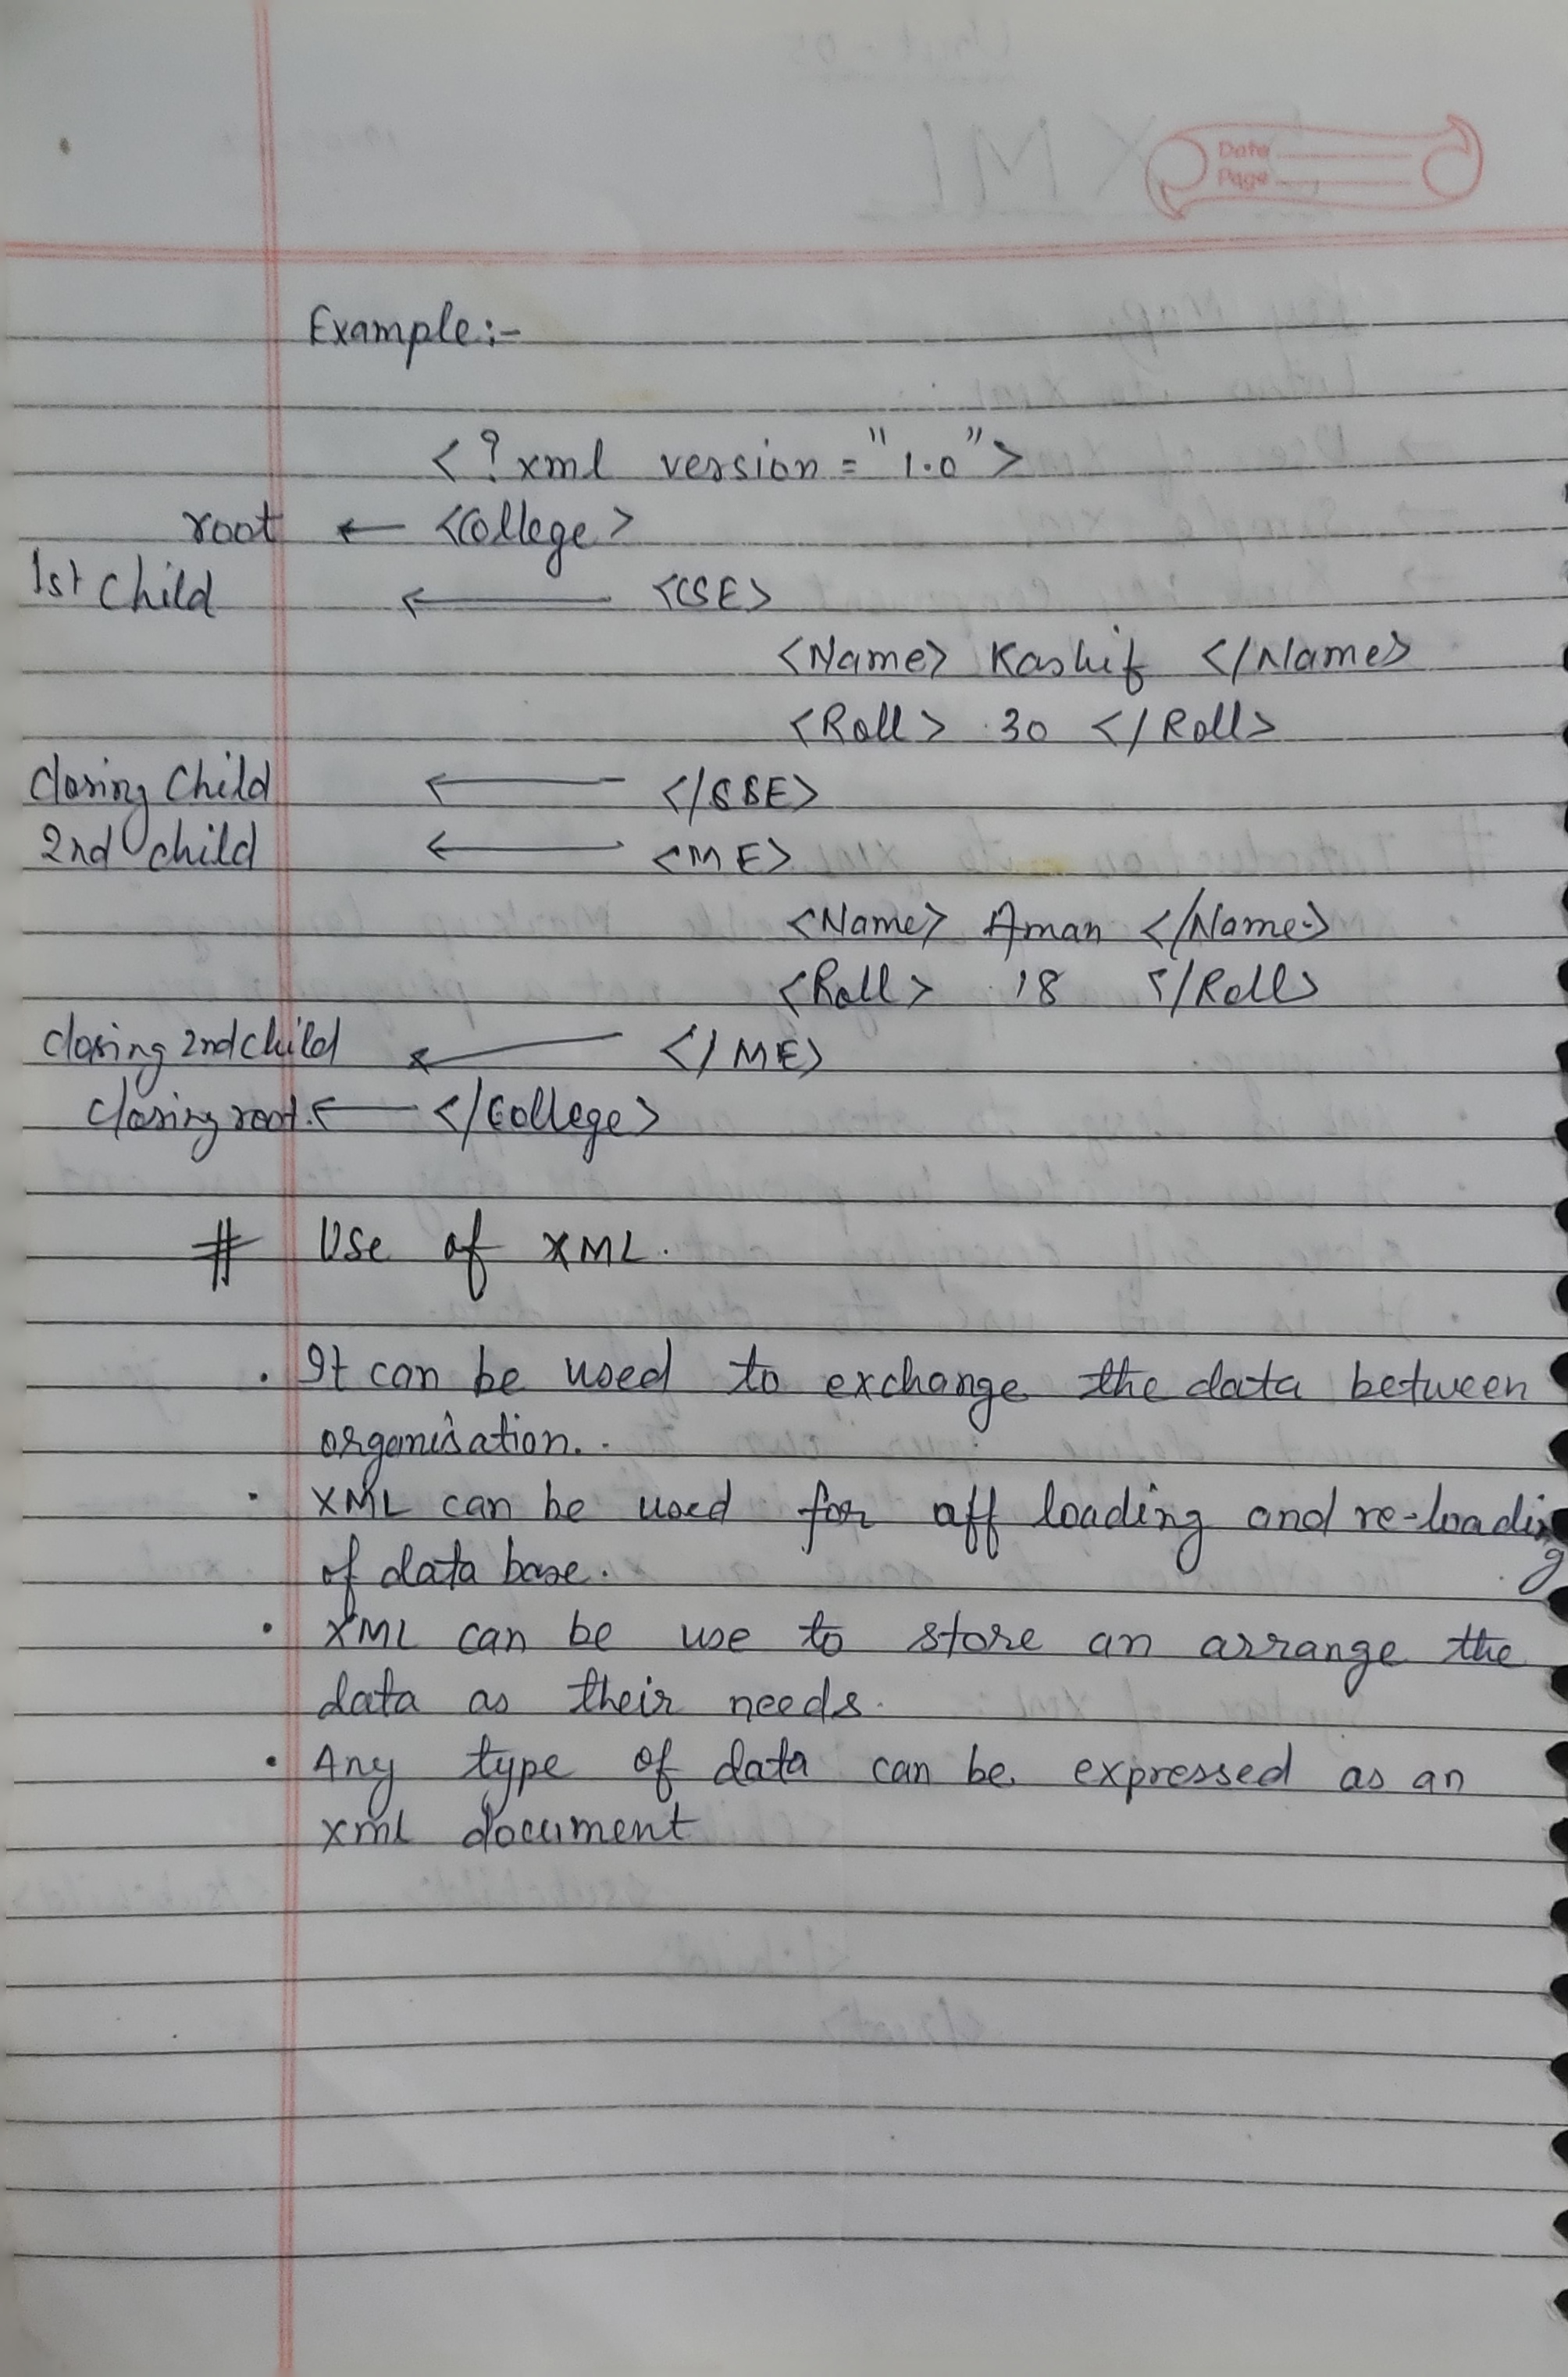 Date
Page
Example:-
<?xml version = "1.0">
root ← <College>
1st Child ← <CSE>
<Name> Kashif </Name>
<Roll> 30 </Roll>
Closing Child ← </SSE>
2nd child ← <ME>
<Name> Aman </Name>
<Roll> 18 </Roll>
closing 2nd child ← </ME>
closing root. ← </College>
# Use of XML.
. It can be used to exchange the data between
organisation..
. XML can be used for off loading and re-loading
of data base.
. XML can be use to store an arrange the
data as their needs.
. Any type of data can be expressed as an
xml document